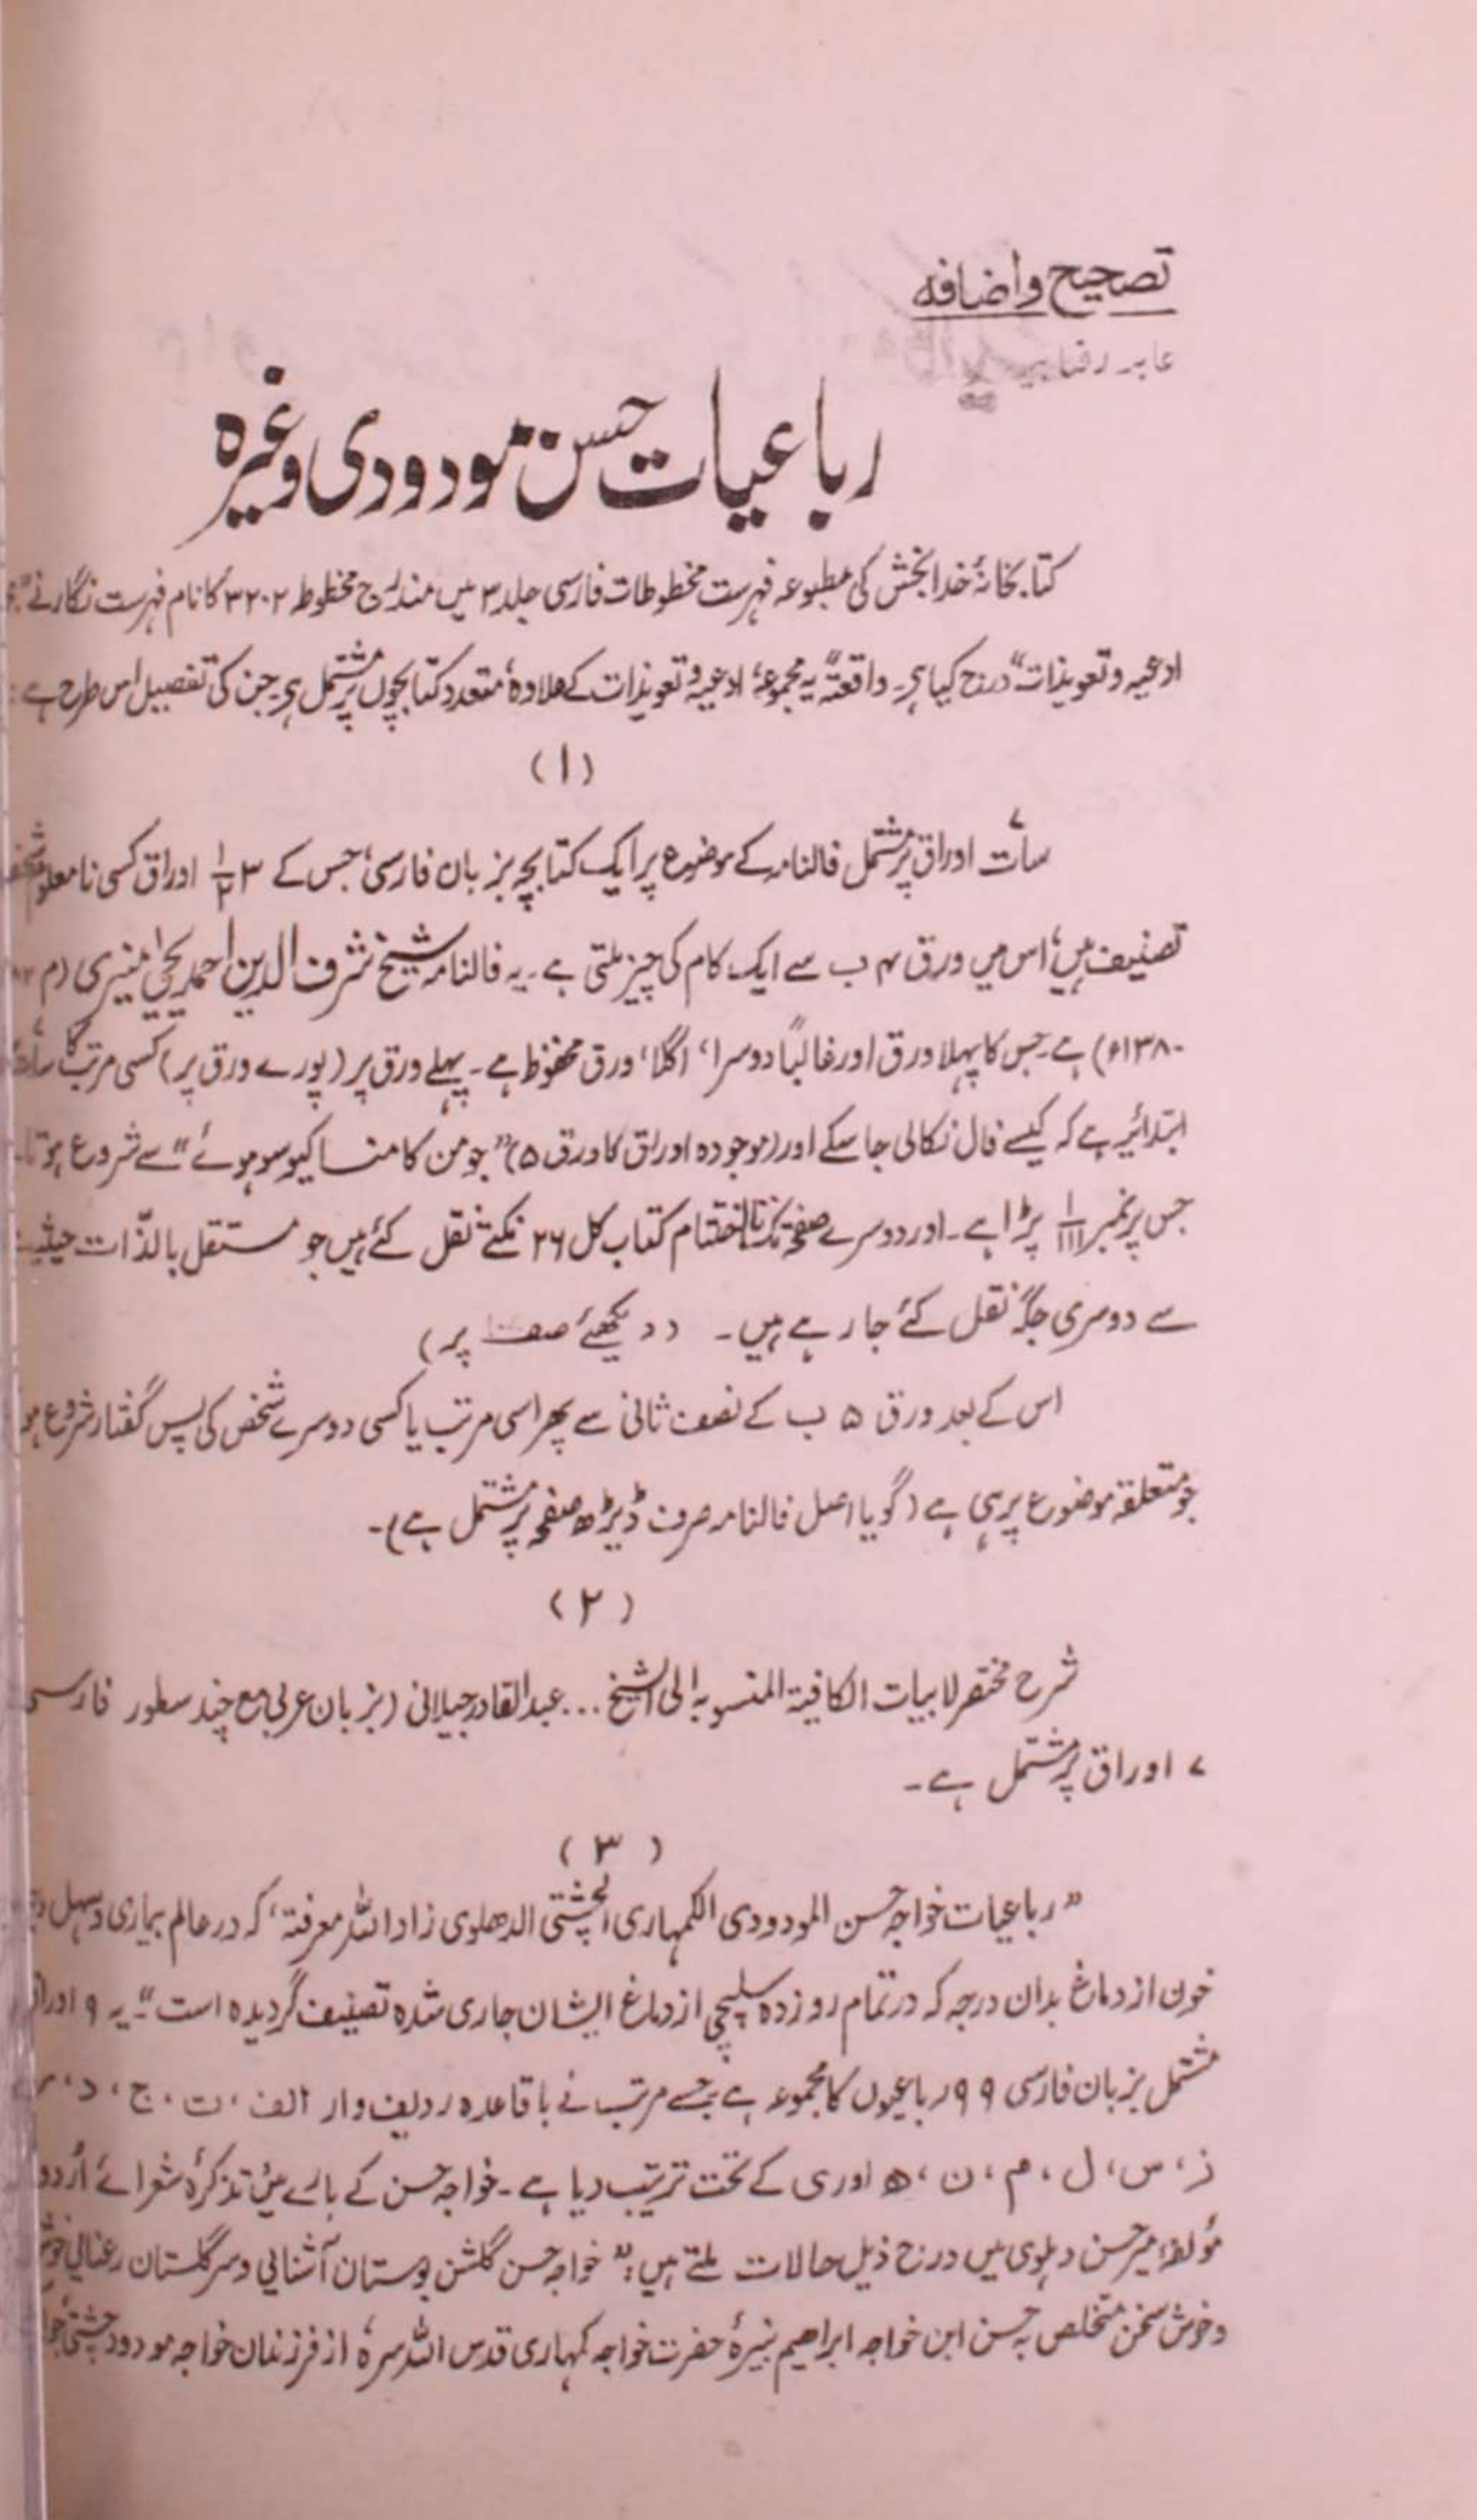 تصحیح واضافہ
عابد رضا بیدار
رباعیات حسن مودودی وغیرہ
کتابخانۂ خدابخش کی مطبوعہ فہرست مخطوطات فارسی جلد ۳ میں مندرج مخطوطہ ۳۲۰۲ کا نام فہرست نگار نے
ادعیہ و تعویذات" درج کیا ہے۔ واقعتہً یہ مجموعہ، ادعیہ و تعویذات کے علاوہ، متعدد کتابچوں پر مشتمل ہے جن کی تفصیل اس طرح ہے:
(۱)
سات اوراق پر مشتمل فالنامہ کے موضوع پر ایک کتابچہ بزبان فارسی، جس کے ۳ ۱/۲ اوراق کسی نامعلوم
تصنیف ہیں، اس میں ورق ۴ ب سے ایک کام کی چیز ملتی ہے۔ یہ فالنامہ شیخ شرف الدین احمد یحییٰ منیری (م
۱۳۸۰ء) ہے جس کا پہلا ورق اور غالباً دوسرا، اگلا، ورق محفوظ ہے۔ پہلے ورق پر (پورے ورق پر) کسی مرتب کا
ابتدائیہ ہے کہ کیسے فال نکالی جا سکے اور (موجودہ اوراق کا ورق ۵) "جو من کا منسا کیو سو ہوئے" سے شروع ہوتا
جس پر نمبر ۱/۱۱۱ پڑا ہے۔ اور دوسرے صفحہ تک تا اختتام کتاب کل ۲۶ نکتے نقل کئے ہیں جو مستقل بالذات حیثیت
سے دوسری جگہ نقل کئے جا رہے ہیں۔ (دیکھئے صفہ پر)
اس کے بعد ورق ۵ ب کے نصف ثانی سے پھر اسی مرتب یا کسی دوسرے شخص کی پس گفتار شروع ہو
جو متعلقہ موضوع پر ہی ہے (گویا اصل فالنامہ صرف ڈیڑھ صفحہ پر مشتمل ہے)۔
(۲)
شرح مختصر لابیات الکافیۃ المنسوبہ الی الشیخ... عبدالقادر جیلانی (بزبان عربی مع چند سطور فارسی
۷ اوراق پر مشتمل ہے۔
(۳)
"رباعیات خواجہ حسن المودودی الکمہاری الچشتی الدھلوی زاد اللہ معرفتہ، کہ در عالم بیماری و سہل
خون از دماغ بدان درجہ کہ در تمام روز دہ سلپچی از دماغ ایشان جاری شدہ تصنیف گردیدہ است"۔ یہ ۹ اوراق
مشتمل بزبان فارسی ۹۹ رباعیوں کا مجموعہ ہے جسے مرتب نے باقاعدہ ردیف وار الف، ت، ج، د، ر
ز، س، ل، م، ن، ھ اور ی کے تحت ترتیب دیا ہے۔ خواجہ حسن کے بارے میں تذکرۂ شعرائے اُردو
مؤلفۂ میر حسن دہلوی میں درج ذیل حالات ملتے ہیں: "خواجہ حسن گلشن بوستان آشنایی و سر گلستان رعنایی
و خوش سخن متخلص بہ حسن ابن خواجہ ابراھیم نبیرۂ حضرت خواجہ کمہاری قدس اللہ سرہ، از فرزندان خواجہ مودود چشتی